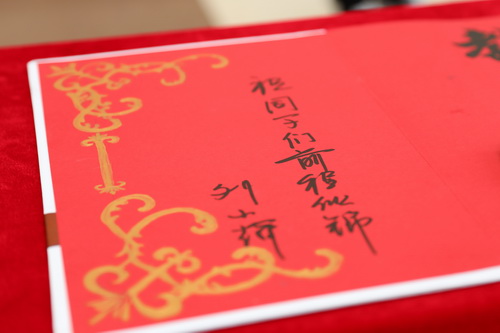 祖同学们前程似锦
刘小